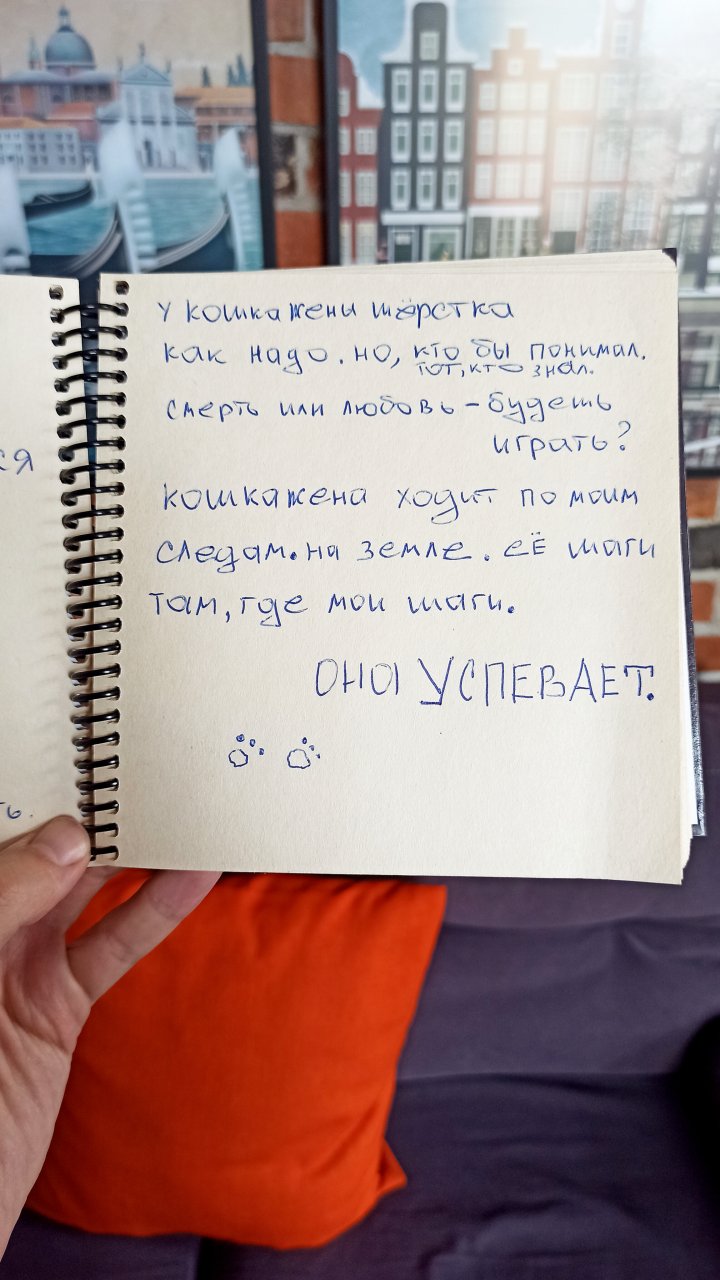 у кошкажены шёрстка
как надо. но, кто бы понимал.
тот, кто знал.
смерть или любовь – будешь
играть?
кошкажена ходит по моим
следам. на земле. её шаги
там, где мои шаги.
ОНА УСПЕВАЕТ.
ся
ть.